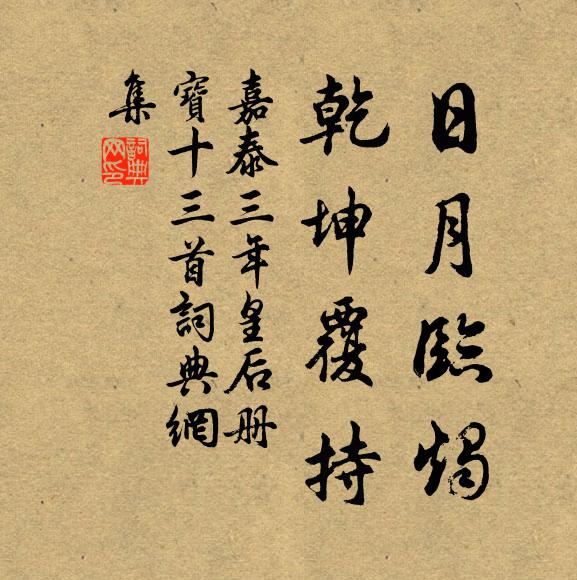 日月臨燭
乾坤覆持
嘉泰三年皇后册
寶十三首詞典網
集
詞典網印